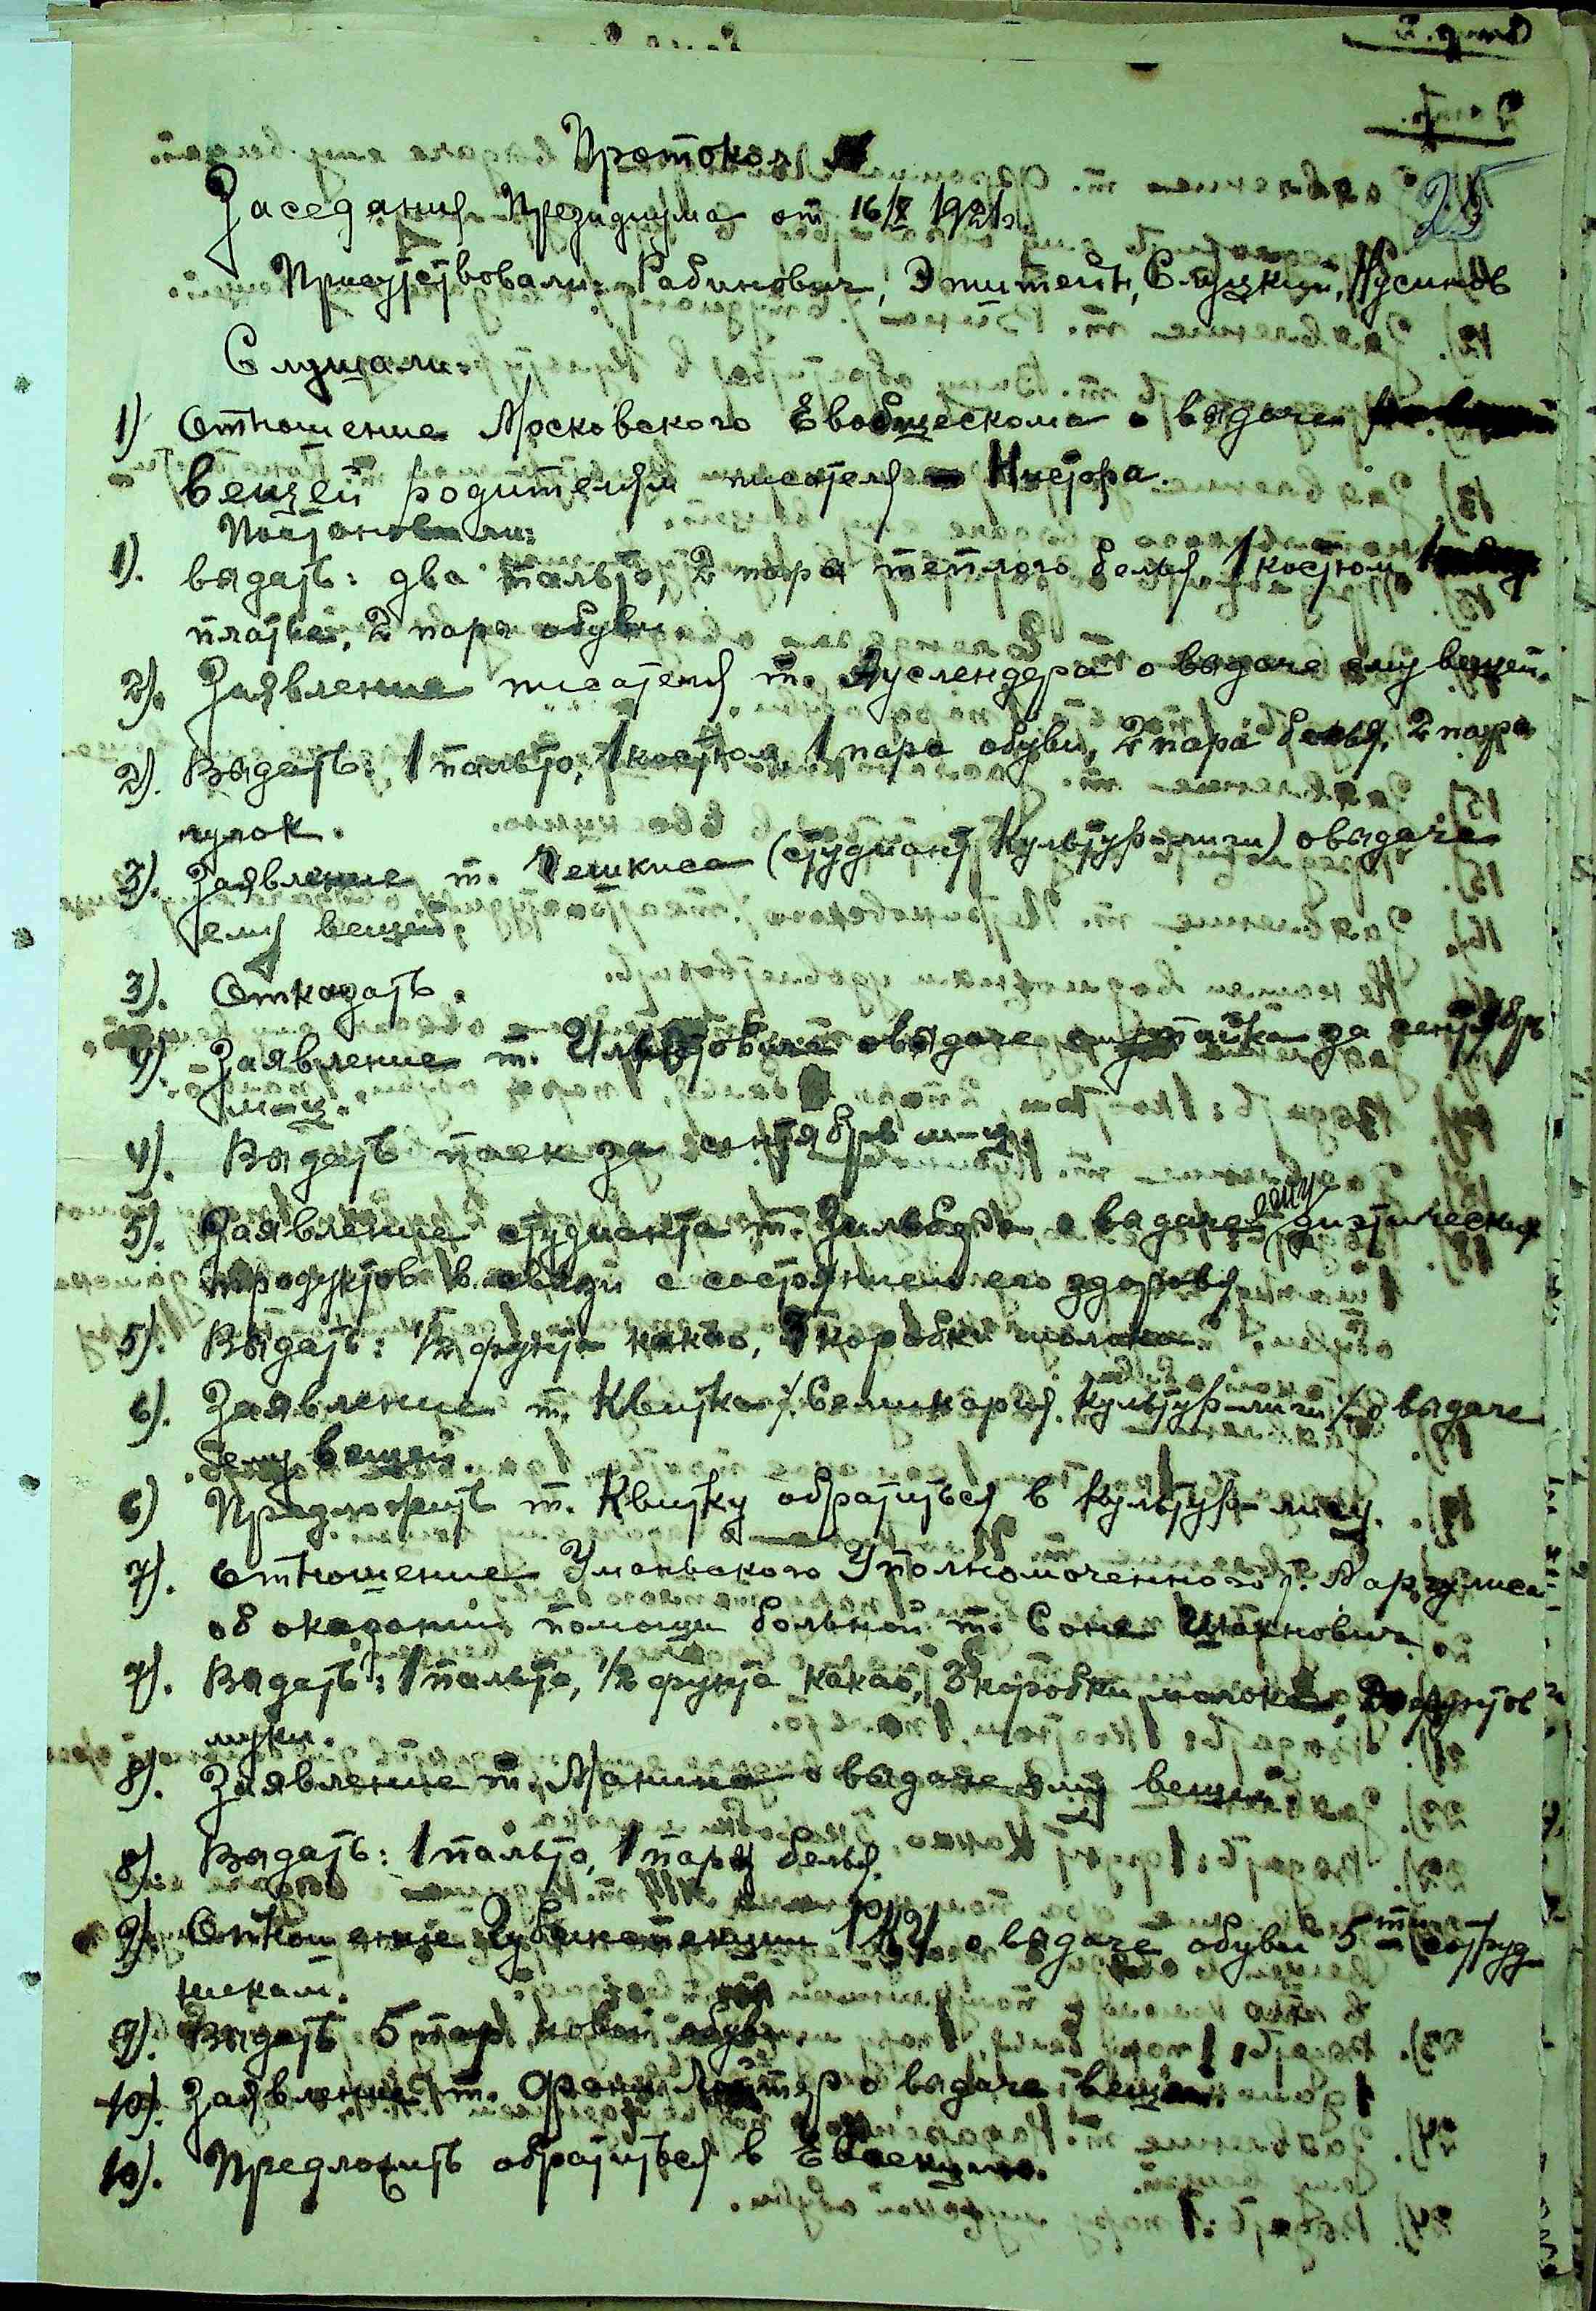 Протокол
Заседания Президиума от 16/X 1921г.
Присутствовали: Рабинович, Эпштейн, Слуцкий, Нусинов
Слушали:
1) Отношение Московского Евобщескома о выдаче
вещей родителям писателя
Постановили:
1). выдать: два пальто, 2 пары теплого белья, 1 костюм, 1
платье, 2 пары обуви
2). Заявление писателя т. Ауслендера о выдаче ему вещей.
2). Выдать: 1 пальто, 1 костюм, 1 пара обуви, 2 пара белья, 2 пара
чулок.
3). Заявление т. (студиант Культур-лиги) о выдаче
ему вещей.
3). Отказать.
4) Заявление т. о выдаче ему пайка за сентябрь
м-ц.
4). Выдать паек за сентябрь м-ц.
5). Заявление студианта т. о выдаче ему диэтических
продуктов в связи с состоянием его здоровья
5). Выдать: 1/2 фунта какао, 3 коробки молока.
6). Заявление т. Квитко /. Семинария Культур-лиги /. о выдаче
ему вещей.
6) Предложить т. Квитку обратиться в Культур-лигу.
7). Отношение Уманьского Уполномоченного т. Маргулиса
об оказании помощи больной т. Соне Шахнович.
7). Выдать: 1 пальто, 1/2 фунта какао, 3 коробки молока, фунтов
муки.
8). Заявление т. Манина о выдаче ему вещей
8). Выдать: 1 пальто, 1 пару белья.
9) Отношение Губинспекции РКИ о выдаче обуви 5-ти сотруд-
никам.
9). Выдать 5 пар новой обуви.
10). Заявление т. Фани о выдаче вещей.
10). Предложить обратиться в Евсекцию.
25